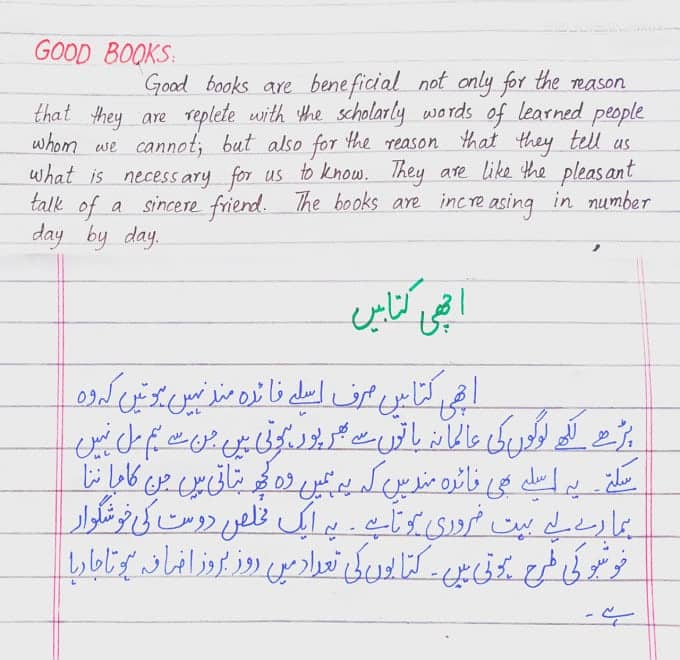 GOOD BOOKS:
Good books are beneficial not only for the reason
that they are replete with the scholarly words of learned people
whom we cannot; but also for the reason that they tell us
what is necessary for us to know. They are like the pleasant
talk of a sincere friend. The books are increasing in number
day by day.
اچھی کتابیں
اچھی کتابیں صرف اسلئے فائدہ مند نہیں ہوتیں کہ وہ
پڑھے لکھے لوگوں کی عالمانہ باتوں سے بھرپور ہوتی ہیں جن سے ہم مل نہیں
سکتے۔ یہ اسلئے بھی فائدہ مند ہیں کہ یہ ہمیں وہ کچھ بتاتی ہیں جن کا جاننا
ہمارے لیے بہت ضروری ہوتا ہے۔ یہ ایک مخلص دوست کی خوشگوار
خوشبو کی طرح ہوتی ہیں۔ کتابوں کی تعداد میں روز بروز اضافہ ہوتا جا رہا
ہے۔